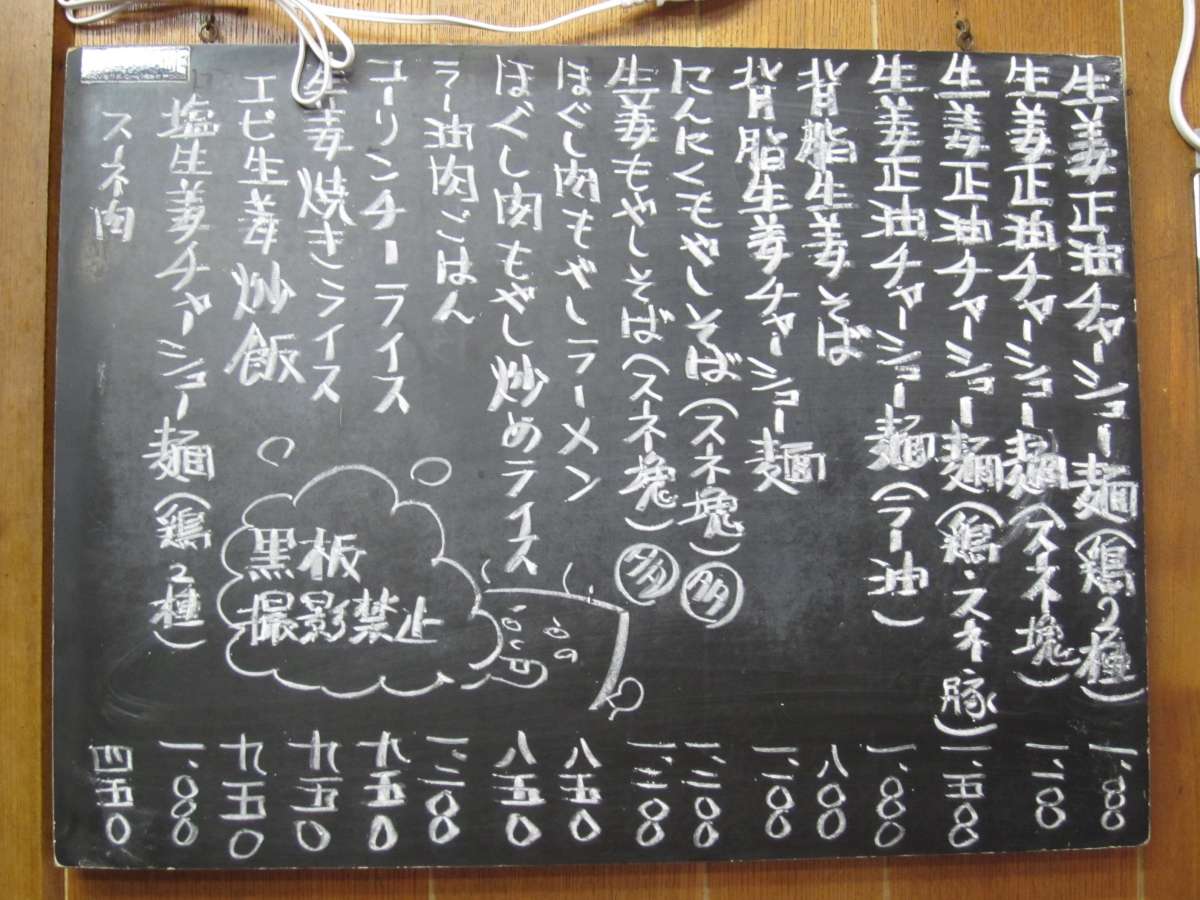 生姜正油チャーシュー麺(鶏2種) 一、〇〇〇
生姜正油チャーシュー麺(スネ塊) 一、二〇〇
生姜正油チャーシュー麺(鶏・スネ・豚) 一、五〇〇
生姜正油チャーシュー麺(ラー油) 一、〇〇〇
背脂生姜そば 八〇〇
背脂生姜チャーシュー麺 一、二〇〇
にんにくもやしそば(スネ塊)多 一、二〇〇
生姜もやしそば(スネ塊)多 一、二〇〇
ほぐし肉もやしラーメン 八五〇
ほぐし肉もやし炒めライス 八五〇
ラー油肉ごはん 一、二〇〇
ユーリンチーライス 九五〇
生姜焼きライス 九五〇
エビ生姜炒飯 九五〇
塩生姜チャーシュー麺(鶏2種) 一、〇〇〇
スネ肉 四五〇
黒板
撮影禁止